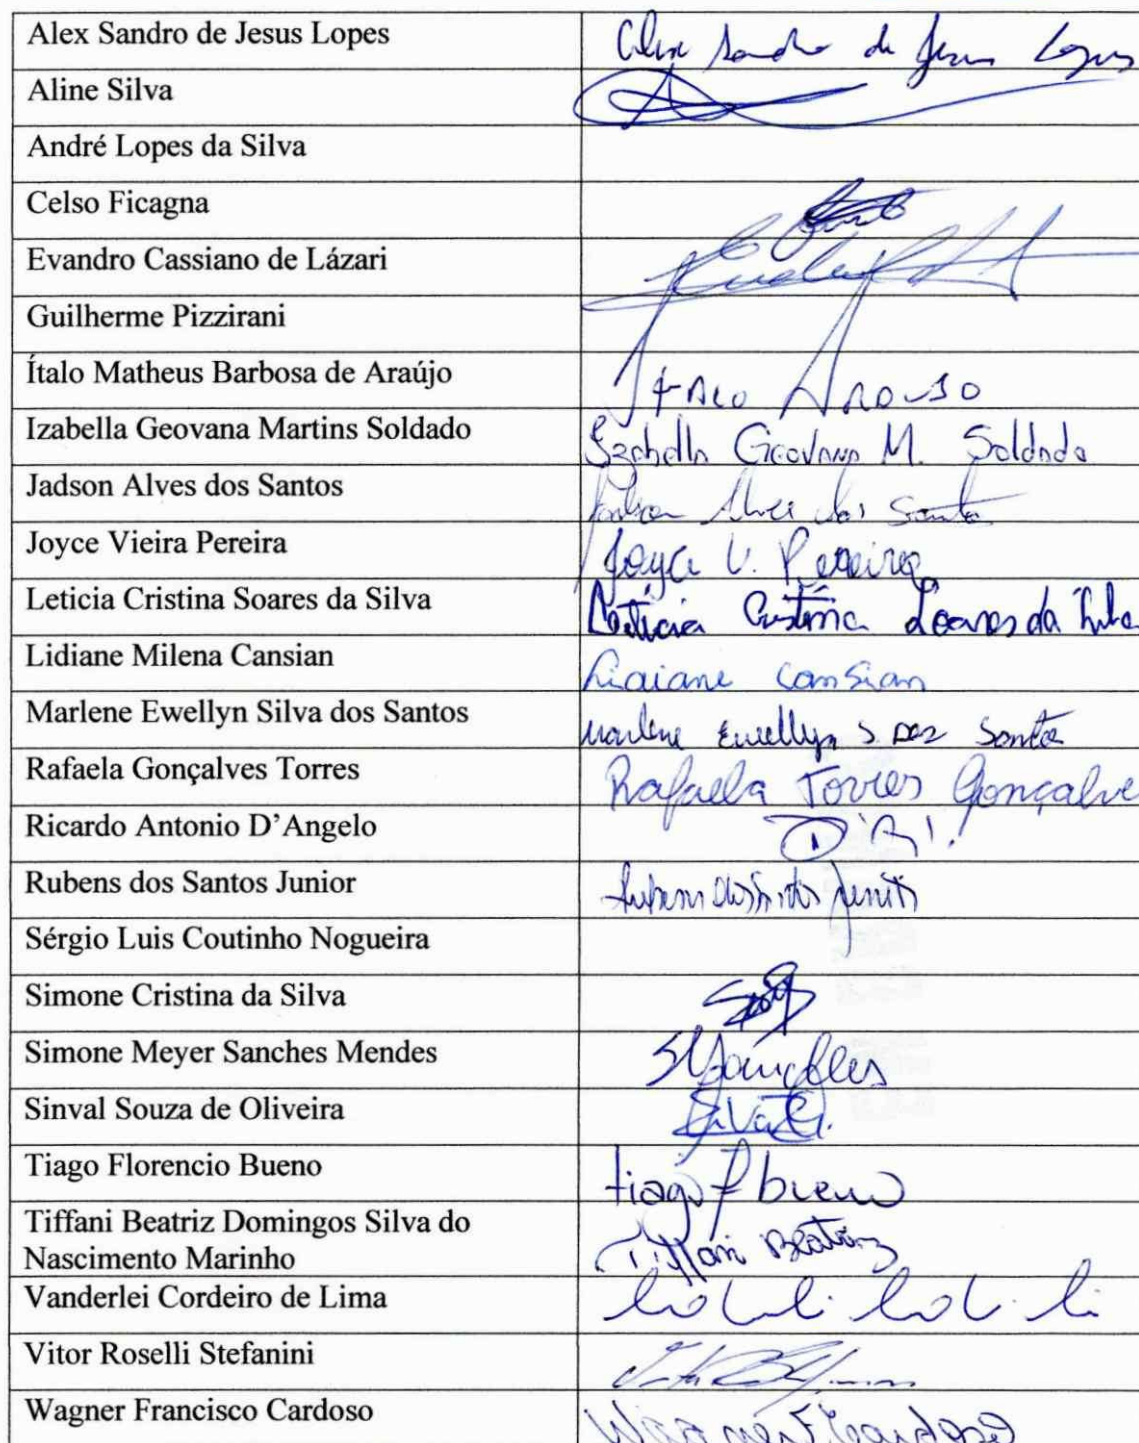 Alex Sandro de Jesus Lopes Alex Sandro de Jesus Lopes
Aline Silva
André Lopes da Silva
Celso Ficagna
Evandro Cassiano de Lázari
Guilherme Pizzirani
Ítalo Matheus Barbosa de Araújo Ítalo Araujo
Izabella Geovana Martins Soldado Izabella Geovana M. Soldado
Jadson Alves dos Santos Jadson Alves dos Santos
Joyce Vieira Pereira Joyce V. Pereira
Leticia Cristina Soares da Silva Letícia Cristina Soares da Silva
Lidiane Milena Cansian Lidiane Cansian
Marlene Ewellyn Silva dos Santos Marlene Ewellyn S. dos Santos
Rafaela Gonçalves Torres Rafaela Torres Gonçalve
Ricardo Antonio D'Angelo
Rubens dos Santos Junior Rubens dos Santos Junior
Sérgio Luis Coutinho Nogueira
Simone Cristina da Silva
Simone Meyer Sanches Mendes
Sinval Souza de Oliveira
Tiago Florencio Bueno tiago f bueno
Tiffani Beatriz Domingos Silva do
Nascimento Marinho Tiffani Beatriz
Vanderlei Cordeiro de Lima
Vitor Roselli Stefanini
Wagner Francisco Cardoso Wagner F. Cardoso